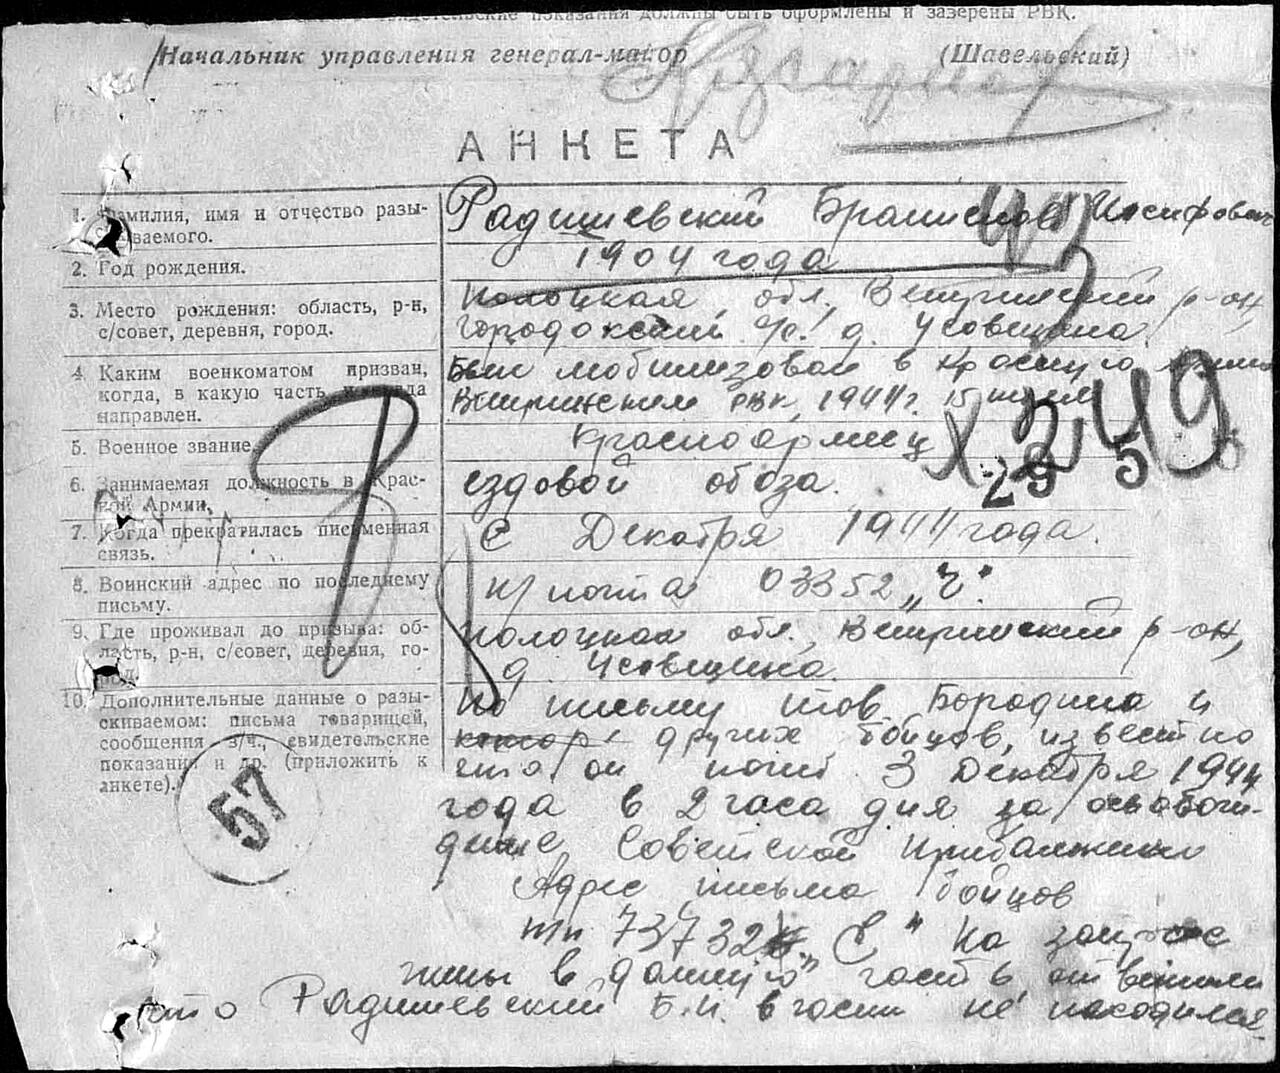 свидетельские показания должны быть оформлены и заверены РВК.
Начальник управления генерал-майор (Шавельский)
АНКЕТА
1. Фамилия, имя и отчество разы-
скиваемого.
Радишевский Бранислав Иосифович
2. Год рождения.
1904 года
3. Место рождения: область, р-н,
с/совет, деревня, город.
Полоцкая обл. Ветринский р-он,
Городокский с/с. д. Усовщина
4. Каким военкоматом призван,
когда, в какую часть и куда
направлен.
Был мобилизован в Красную армию
Ветринским РВК, 1944 г. 15 июля
5. Военное звание.
Красноармеец
6. Занимаемая должность в Крас-
ной Армии.
ездовой обоза.
7. Когда прекратилась письменная
связь.
С Декабря 1944 года.
8. Воинский адрес по последнему
письму.
п/почта 03352 „У".
9. Где проживал до призыва: об-
ласть, р-н, с/совет, деревня, го-
род.
Полоцкая обл., Ветринский р-он,
д. Усовщина.
10. Дополнительные данные о разы-
скиваемом: письма товарищей,
сообщения з/ч., свидетельские
показания и др. (приложить к
анкете).
по письму тов. Бородина и
других бойцов, известно
что он погиб 3 Декабря 1944
года в 2 часа дня за освобож-
дение Советской Прибалтики
Адрес письма бойцов
пп 73732 „Е" На запрос
жены в данную часть ответили
что Радишевский Б.И. в части не находился
29 5
49
57